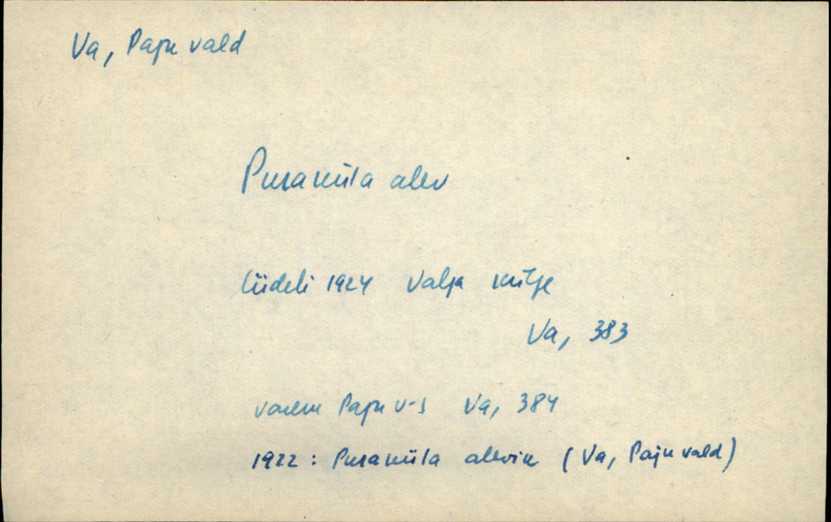 Va, Paju vald
Puraküla alev
liideti 1924 Valga külge
Va, 383
varem Paju v-s Va, 384
1922: Puraküla alevik (Va, Paju vald)